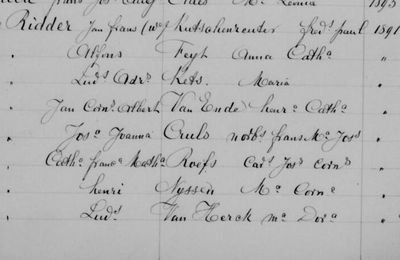 frans Jos Cuts Maª Leonia 1895
Ridder Jan frans (we) Kutschenreuter fredˢ paul 1891
" Alfons Feyt Anna Cathª "
" Ludˢ Adrˢ Kets Maria "
" Jan Cornˢ Albert Van Ende henrª Cathª "
" Josª Joanna Cruls norbˢ frans Mª Josˢ "
" Cathª francª Mathª Roofs Carˢ Josˢ Cornˢ "
" henri Nyssen Mª Cornª "
" Ludˢ Van Herck mª Dorª "